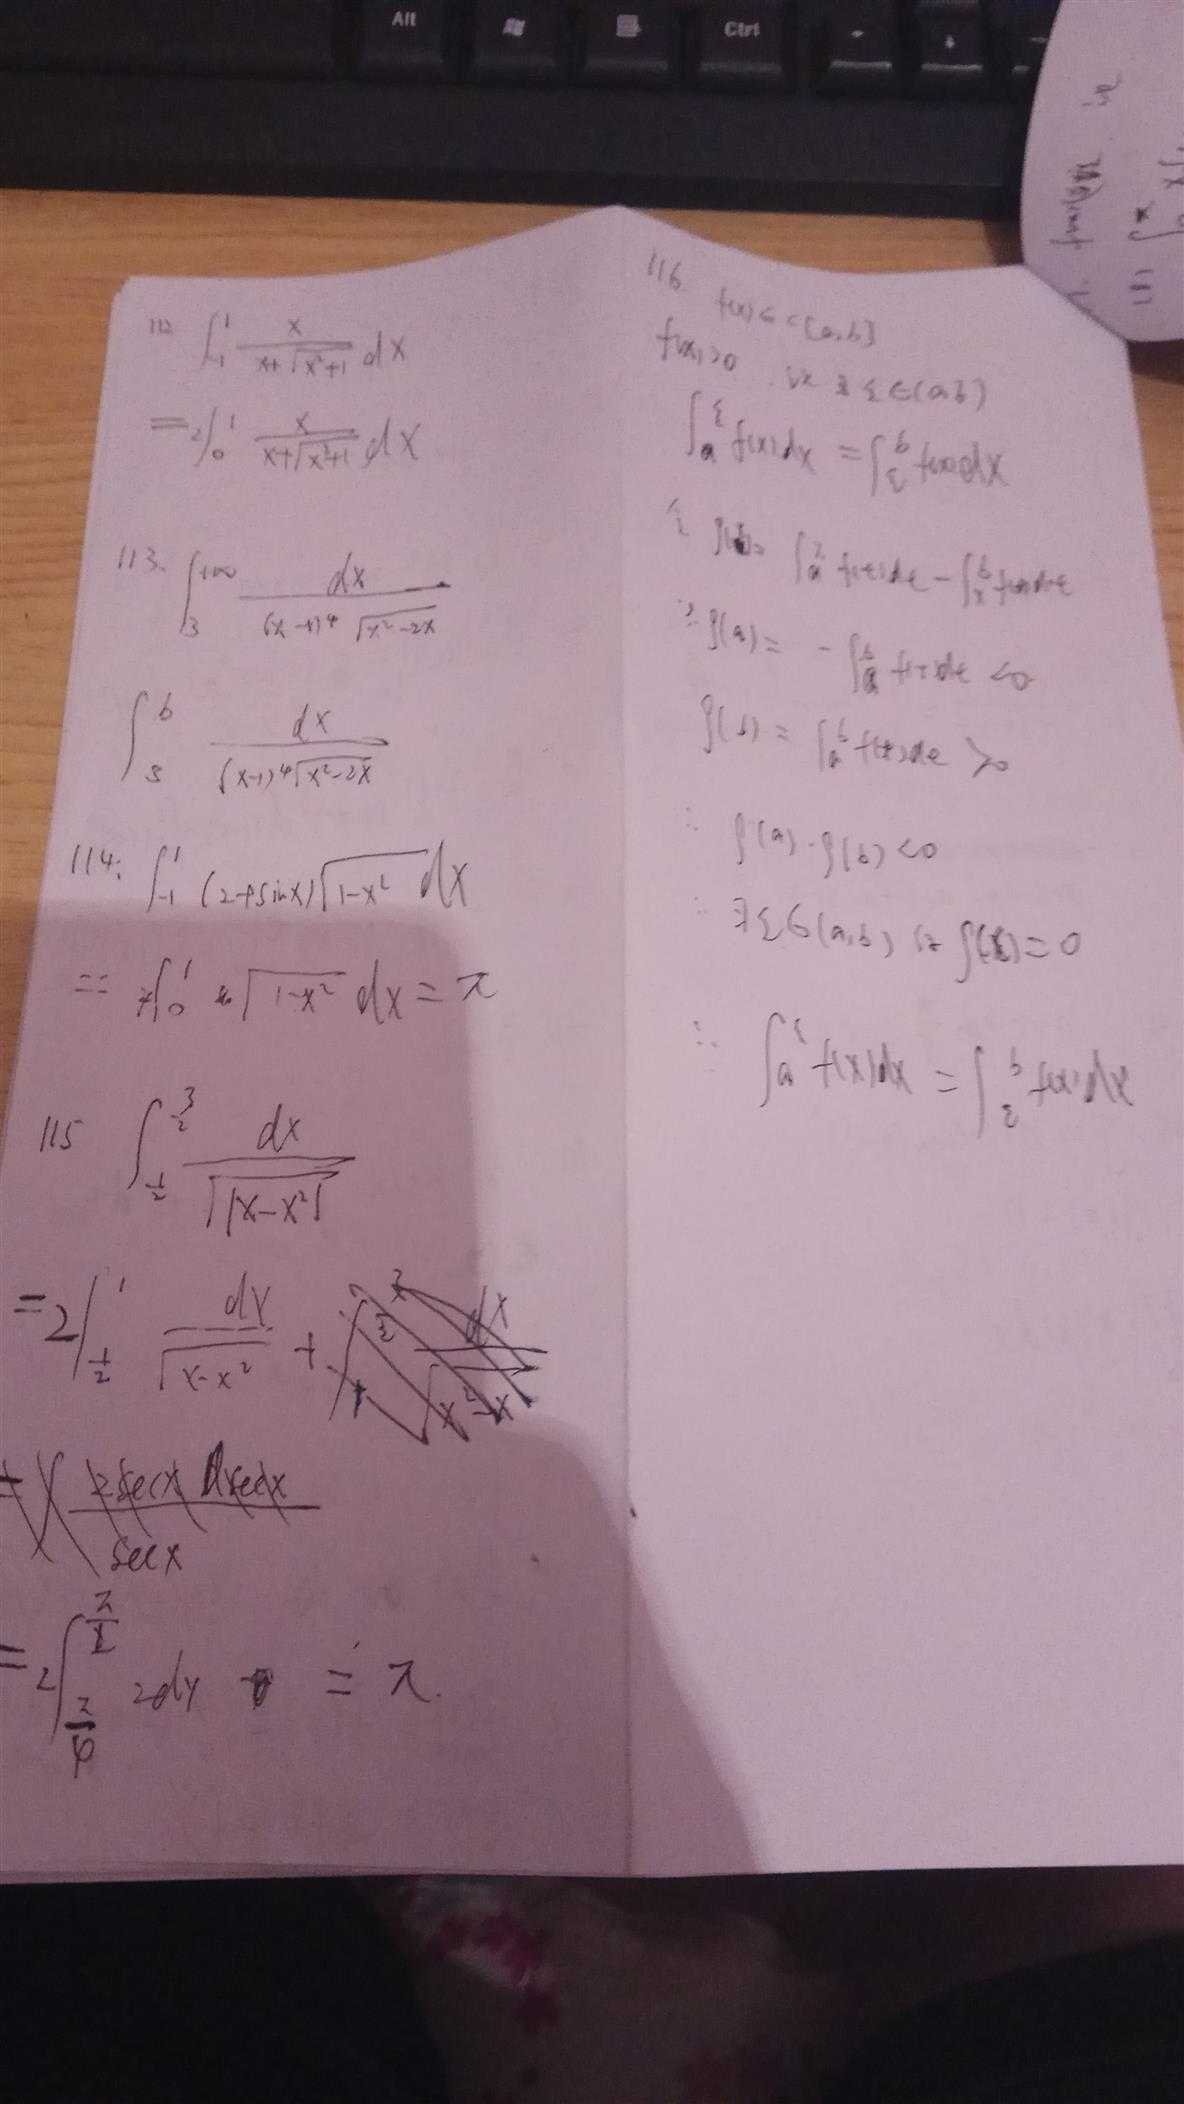 Alt Ctrl - +
112 ∫_{-1}^{1} x/(x+√(x²+1)) dx
= 2∫_0^1 x/(x+√(x²+1)) dx
113. ∫_3^{+∞} dx/((x-1)⁴√(x²-2x))
∫_3^b dx/((x-1)⁴√(x²-2x))
114. ∫_{-1}^{1} (2+sinx)√(1-x²) dx
= ∫_0^1 √(1-x²) dx = π
115 ∫_{1/2}^{3/2} dx/√|x-x²|
= 2∫_{1/2}^{1} dx/√(x-x²) +
= 2∫_{π/4}^{π/2} 2dy = π.
116 f(x)∈C[a,b]
f(x)>0 ∃ξ∈(a,b)
∫_a^ξ f(x)dx = ∫_ξ^b f(x)dx
∫_a^x f(t)dt - ∫_x^b f(t)dt
∴ φ(a) = -∫_a^b f(t)dt <0
φ(b) = ∫_a^b f(t)dt >0
∴ φ(a)·φ(b)<0
∴ ∃ξ∈(a,b) φ(ξ)=0
∴ ∫_a^ξ f(x)dx = ∫_ξ^b f(x)dx